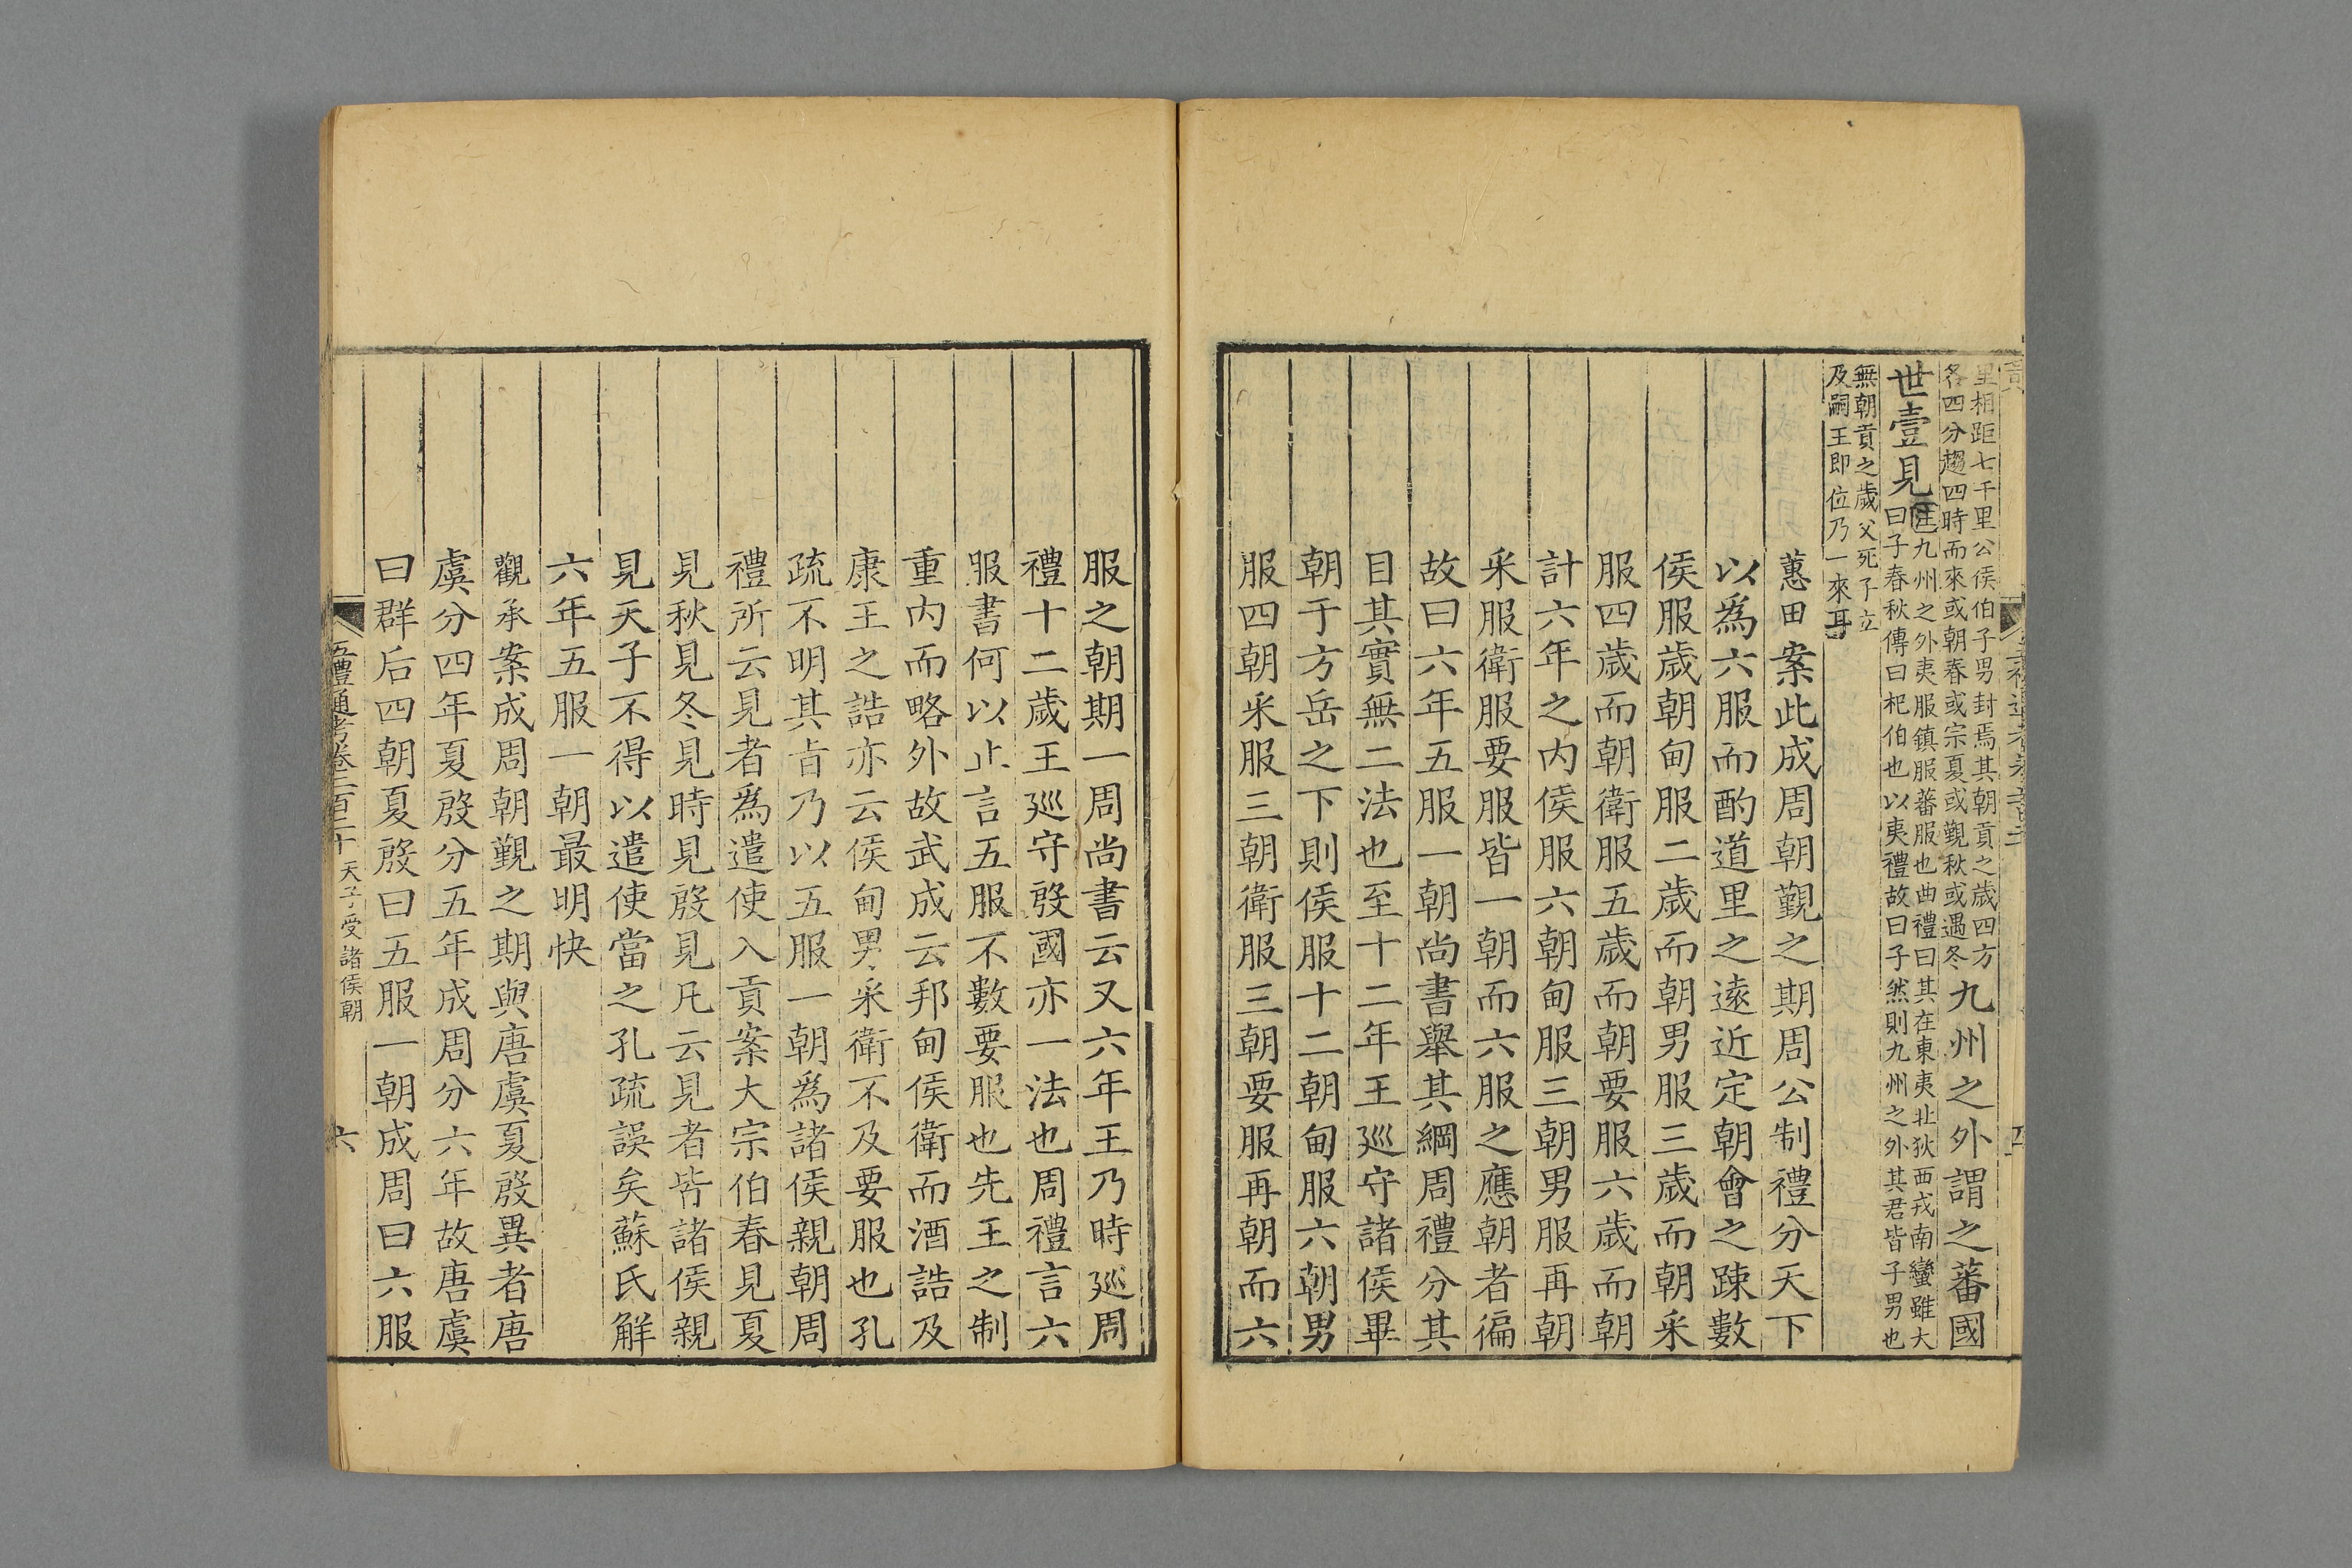 里相距七千里公侯伯子男封焉其朝貢之歲四方
各四分趨四時而來或朝春或宗夏或覲秋或遇冬
九州之外謂之蕃國
世壹見
注九州之外夷服鎮服蕃服也曲禮曰其在東夷北狄西戎南蠻雖大
曰子春秋傳曰杞伯也以夷禮故曰子然則九州之外其君皆子男也
無朝貢之歲父死子立
及嗣王即位乃一來耳
蕙田案此成周朝覲之期周公制禮分天下
以爲六服而酌道里之遠近定朝會之踈數
侯服歲朝甸服二歲而朝男服三歲而朝采
服四歲而朝衛服五歲而朝要服六歲而朝
計六年之內侯服六朝甸服三朝男服再朝
采服衛服要服皆一朝而六服之應朝者徧
故曰六年五服一朝尚書舉其綱周禮分其
目其實無二法也至十二年王廵守諸侯畢
朝于方岳之下則侯服十二朝甸服六朝男
服四朝采服三朝衛服三朝要服再朝而六
服之朝期一周尚書云又六年王乃時廵周
禮十二歲王廵守殷國亦一法也周禮言六
服書何以止言五服不數要服也先王之制
重內而略外故武成云邦甸侯衛而酒誥及
康王之誥亦云侯甸男采衛不及要服也孔
疏不明其㫖乃以五服一朝爲諸侯親朝周
禮所云見者爲遣使入貢案大宗伯春見夏
見秋見冬見時見殷見凡云見者皆諸侯親
見天子不得以遣使當之孔疏誤矣蘇氏解
六年五服一朝最明快
觀承案成周朝覲之期與唐虞夏殷異者唐
虞分四年夏殷分五年成周分六年故唐虞
曰群后四朝夏殷曰五服一朝成周曰六服
五禮通考卷二百二十
天子受諸侯朝
六